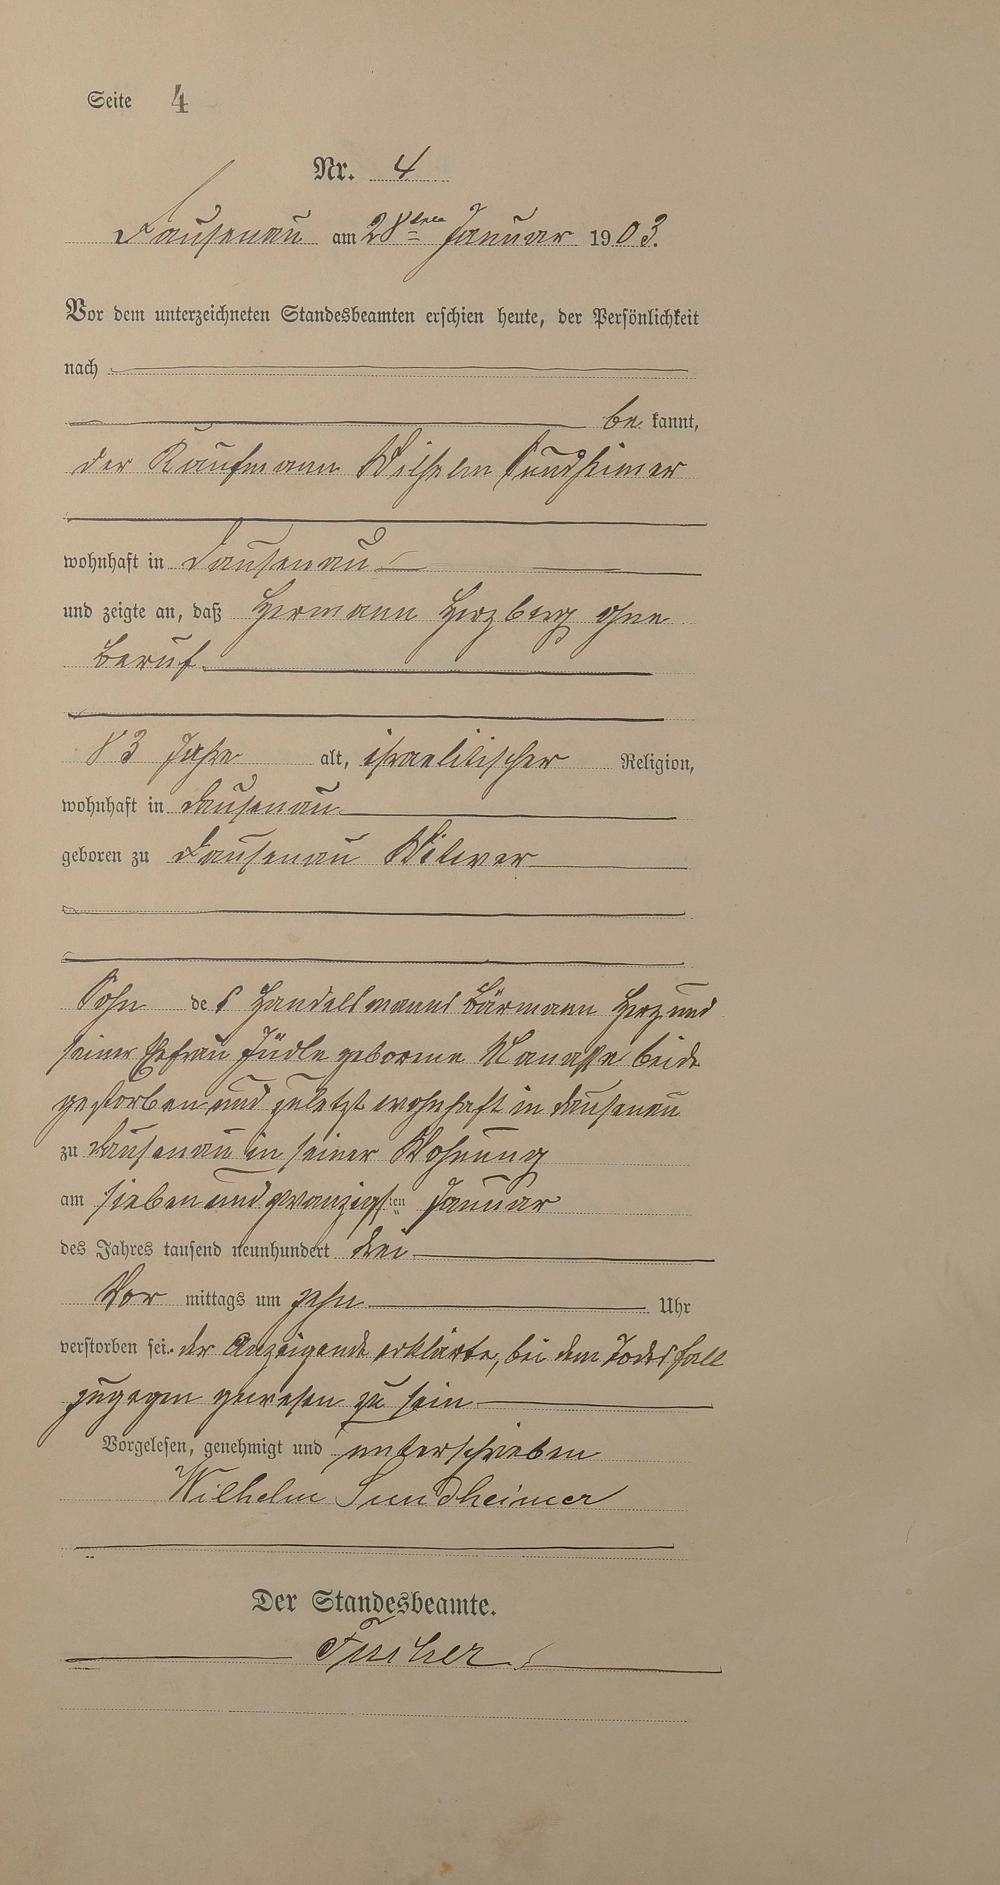 Seite 4
Nr. 4
Dausenau am 28ten Januar 1903.
Vor dem unterzeichneten Standesbeamten erschien heute, der Persönlichkeit
nach
be kannt,
der Kaufmann Wilhelm Sundheimer
wohnhaft in Dausenau
und zeigte an, daß Hermann Herzberg ohne
Beruf
83 Jahre alt, israelitischer Religion,
wohnhaft in Dausenau
geboren zu Dausenau Witwer
Sohn des Handelsmanns Bärmann Herz und
seiner Ehefrau Jüdle geborene Manasse beide
gestorben und zuletzt wohnhaft in Dausenau
zu Dausenau in seiner Wohnung
am siebenundzwanzigsten Januar
des Jahres tausend neunhundert drei
Vor mittags um zehn Uhr
verstorben sei. der Anzeigende erklärte, bei dem Todesfall
zugegen gewesen zu sein
Vorgelesen, genehmigt und unterschrieben
Wilhelm Sundheimer
Der Standesbeamte.